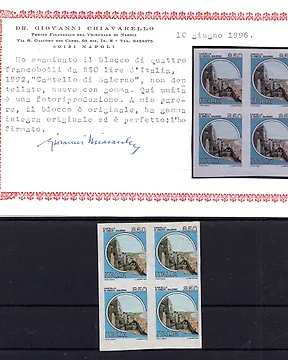 DR. GIOVANNI CHIAVARELLO
PERITO FILATELICO DEL TRIBUNALE DI NAPOLI
80131 NAPOLI
10 giugno 1996.
Ho esaminato il blocco di quattro
francobolli da 850 lire d'Italia,
1992,"Castello di Salerno", non den
tellato, nuovo con gomma. Qui unita
è una fotoriproduzione. A mio pare-
re, il blocco è originale, ha gomma
integra originale ed è perfetto:l'ho
firmato.
850 850
ITALIA ITALIA
850 850
ITALIA ITALIA